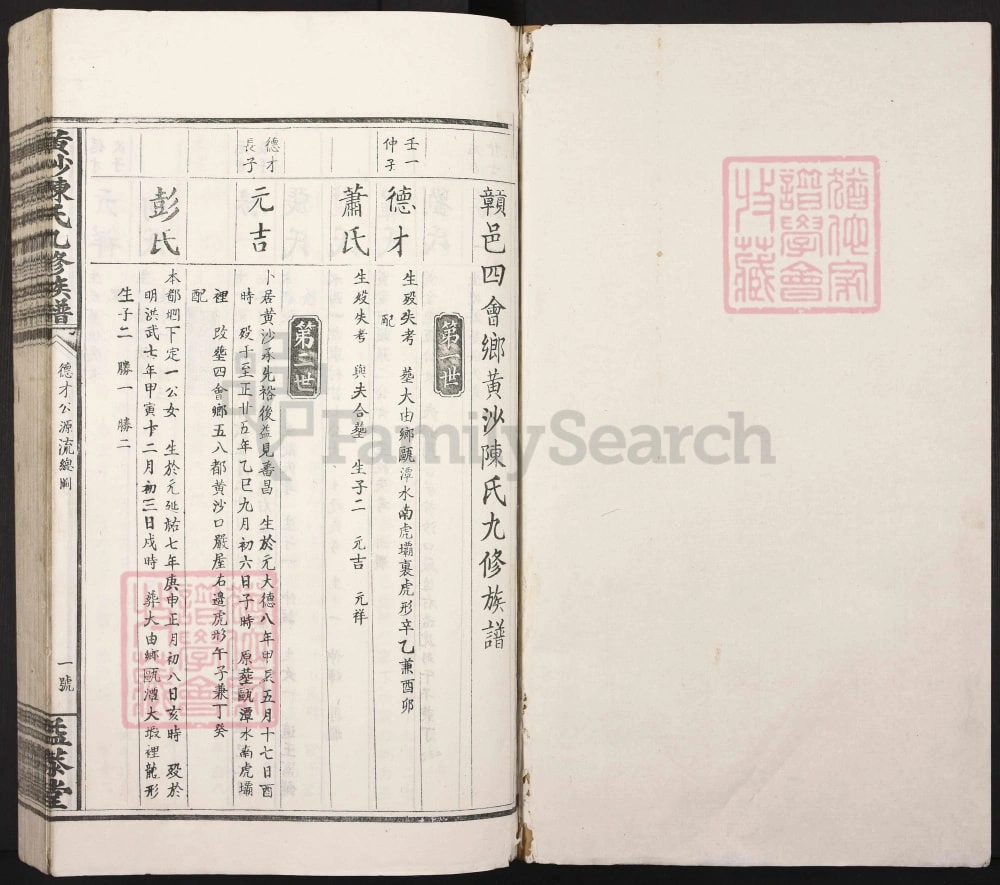 贑邑四會鄉黃沙陳氏九修族譜
第一世
壬一
仲子
德才
生殁失考 塟大由鄉甌潭水南虎壩裏虎形辛乙兼酉卯
配
蕭氏
生殁失考 與夫合塟 生子二 元吉 元祥
第二世
德才
長子
元吉
卜居黃沙承先裕後益見蕃昌 生於元大德八年甲辰五月十七日酉
時 殁于至正廿五年乙巳九月初六日子時 原塟甌潭水南虎壩
裡 改塟四會鄉五八都黃沙口嚴屋右邊虎形午子兼丁癸
配
彭氏
本都坰下定一公女 生於元延祐七年庚申正月初八日亥時 殁於
明洪武七年甲寅十二月初三日戍時 葬大由鄉甌潭大塅裡龍形
生子二 勝一 勝二
黃沙陳氏九修族譜
德才公源流總圖
一號
孟恭堂
FamilySearch
譜學會
收藏